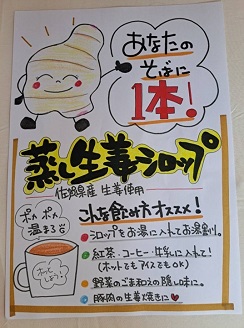 あなたの
そばに
1本!
蒸し生姜シロップ
佐賀県産 生姜使用
ポカポカ
温まる
ホッと
しよう!
こんな飲み方オススメ!
シロップをお湯に入れてお湯割り。
紅茶・コーヒー・牛乳に入れて!
(ホットでもアイスでもOK)
野菜のごま和えの隠し味に。
豚肉の生姜焼きに